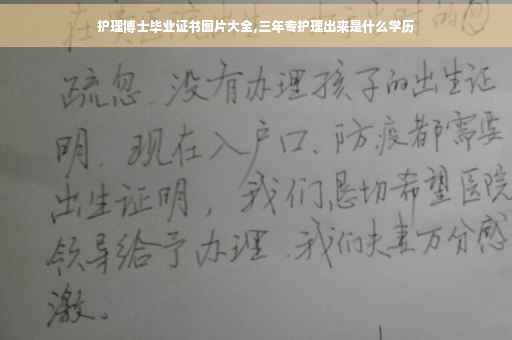 护理博士毕业证书图片大全,三年专护理出来是什么学历
疏忽.没有办理孩子的出生证
明.现在入户口、防疫都需要
出生证明，我们恳切希望医院
领导给予办理.我们夫妻万分感
激。